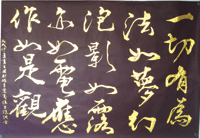 一切有為
法如夢幻
泡影如露
亦如電應
作如是觀